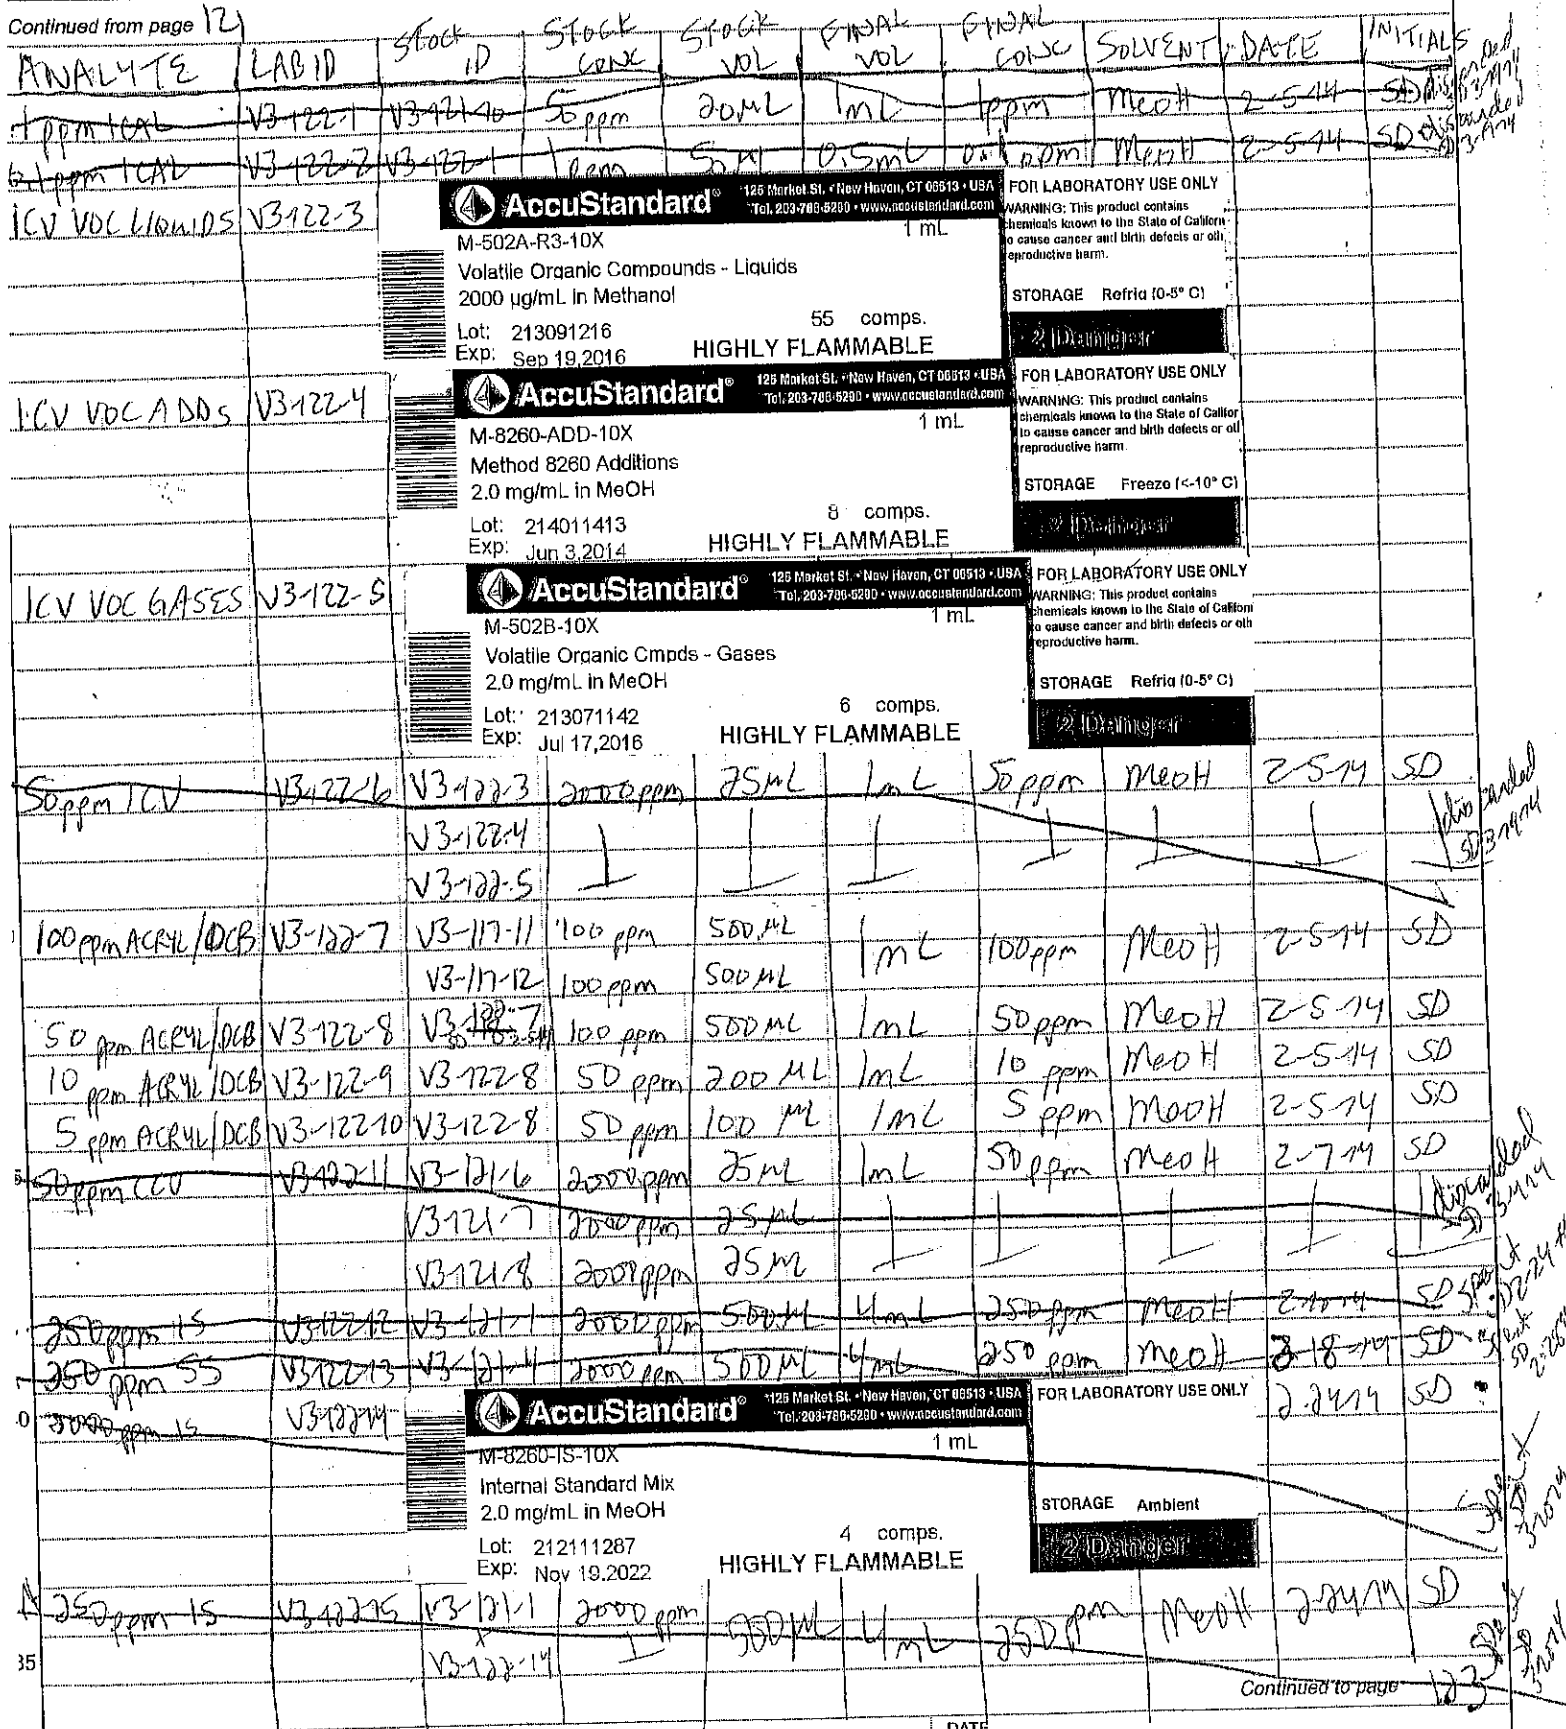 Continued from page 121
ANALYTE LAB ID Stock ID STOCK CONC STOCK VOL FINAL VOL FINAL CONC SOLVENT DATE INITIALS
1 ppm ICAL V3-122-1 V3-121-10 50 ppm 20 µL 1 mL 1 ppm MeoH 2-5-14 SD discarded SD 3-1914
0.1 ppm ICAL V3-122-2 V3-122-1 1 ppm 50 µL 0.5mL 0.1 ppm MeoH 2-5-14 SD discarded
ICV VOC LIQUIDS V3-122-3
AccuStandard® 125 Market St. • New Haven, CT 06513 • USA
Tel. 203-786-5290 • www.accustandard.com
M-502A-R3-10X 1 mL
Volatile Organic Compounds - Liquids
2000 µg/mL in Methanol
55 comps.
Lot: 213091216
Exp: Sep 19,2016 HIGHLY FLAMMABLE
FOR LABORATORY USE ONLY
WARNING: This product contains
chemicals known to the State of Californ
to cause cancer and birth defects or oth
eproductive harm.
STORAGE Refrig (0-5° C)
2 Danger
ICV VOC ADDs V3-122-4
AccuStandard® 125 Market St. • New Haven, CT 06513 • USA
Tel. 203-786-5290 • www.accustandard.com
M-8260-ADD-10X 1 mL
Method 8260 Additions
2.0 mg/mL in MeOH
8 comps.
Lot: 214011413
Exp: Jun 3,2014 HIGHLY FLAMMABLE
FOR LABORATORY USE ONLY
WARNING: This product contains
chemicals known to the State of Califor
to cause cancer and birth defects or otl
reproductive harm.
STORAGE Freeze (<-10° C)
2 Danger
ICV VOC GASES V3-122-5
AccuStandard® 125 Market St. • New Haven, CT 06513 • USA
Tel. 203-786-5290 • www.accustandard.com
M-502B-10X 1 mL
Volatile Organic Cmpds - Gases
2.0 mg/mL in MeOH
6 comps.
Lot: 213071142
Exp: Jul 17,2016 HIGHLY FLAMMABLE
FOR LABORATORY USE ONLY
WARNING: This product contains
chemicals known to the State of Californi
o cause cancer and birth defects or oth
eproductive harm.
STORAGE Refrig (0-5° C)
2 Danger
50 ppm ICV V3-122-6 V3-122-3 2000 ppm 25 µL 1 mL 50 ppm MeoH 2-5-14 SD
V3-122-4 discarded
V3-122-5
100 ppm ACRYL/DCB V3-122-7 V3-117-11 100 ppm 500 µL 1 mL 100 ppm MeoH 2-5-14 SD
V3-117-12 100 ppm 500 µL
50 ppm ACRYL/DCB V3-122-8 V3-122-7 100 ppm 500 µL 1 mL 50 ppm MeoH 2-5-14 SD
10 ppm ACRYL/DCB V3-122-9 V3-122-8 50 ppm 200 µL 1 mL 10 ppm MeoH 2-5-14 SD
5 ppm ACRYL/DCB V3-122-10 V3-122-8 50 ppm 100 µL 1 mL 5 ppm MeoH 2-5-14 SD
50 ppm CCV V3-122-11 V3-121-6 2000 ppm 25 µL 1 mL 50 ppm MeoH 2-7-14 SD
V3-121-7 2000 ppm 25 µL discarded
V3-121-8 2000 ppm 25 µL
250 ppm IS V3-122-12 V3-121-1 2000 ppm 500 µL 4 mL 250 ppm MeoH SD spent
250 ppm SS V3-122-13 V3-121-4 2000 ppm 500 µL 4 mL 250 ppm MeoH 2-18-14 SD spent
2000 ppm IS V3-122-14 2-24-14 SD
AccuStandard® 125 Market St. • New Haven, CT 06513 • USA
Tel. 203-786-5290 • www.accustandard.com
M-8260-IS-10X 1 mL
Internal Standard Mix
2.0 mg/mL in MeOH
4 comps.
Lot: 212111287
Exp: Nov 19,2022 HIGHLY FLAMMABLE
FOR LABORATORY USE ONLY
STORAGE Ambient
2 Danger
spent SD
250 ppm IS V3-122-15 V3-121-1 2000 ppm 500 µL 4 mL 250 ppm MeoH 2-24-14 SD
+ V3-122-14 spent
35
Continued to page 123
DATE